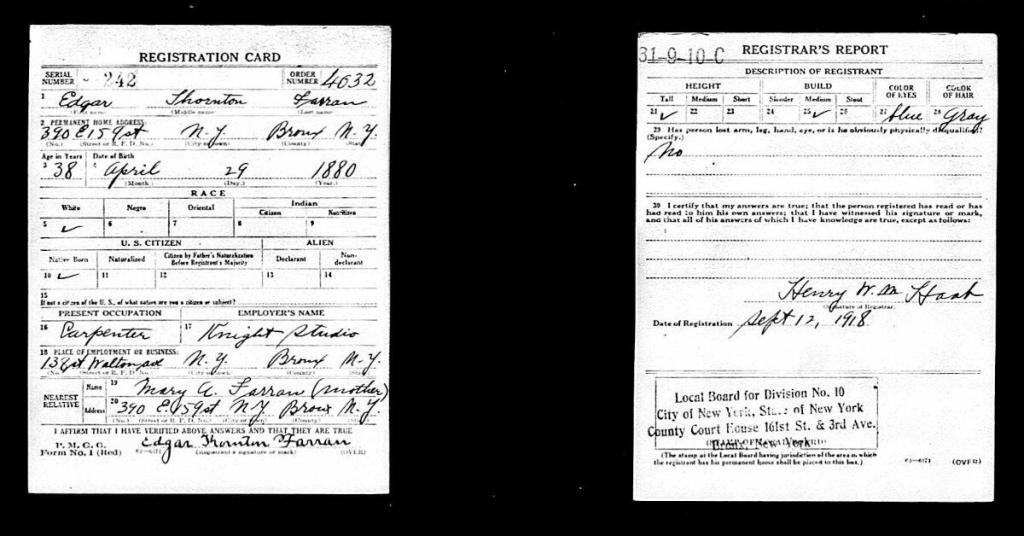 REGISTRATION CARD
SERIAL NUMBER 242 ORDER NUMBER 4632
1 Edgar Thornton Farran
(First name) (Middle name) (Last name)
2 PERMANENT HOME ADDRESS:
390 E 159 st N.Y. Bronx N.Y.
(No.) (Street or R. F. D. No.) (City or town) (County) (State)
Age in Years Date of Birth
3 38 4 April 29 1880
(Month.) (Day.) (Year.)
RACE
White Negro Oriental Indian
Citizen Noncitizen
5 ✓ 6 7 8 9
U. S. CITIZEN ALIEN
Native Born Naturalized Citizen by Father's Naturalization Before Registrant's Majority Declarant Non-declarant
10 ✓ 11 12 13 14
15
If not a citizen of the U. S., of what nation are you a citizen or subject?
PRESENT OCCUPATION EMPLOYER'S NAME
16 Carpenter 17 Knight Studio
18 PLACE OF EMPLOYMENT OR BUSINESS:
138 st Walton ave N.Y. Bronx N.Y.
(No.) (Street or R. F. D. No.) (City or town) (County) (State)
NEAREST RELATIVE
Name 19 Mary A. Farran (Mother)
Address 20 390 E. 159 st NY Bronx N.Y.
(No.) (Street or R. F. D. No.) (City or town) (County) (State)
I AFFIRM THAT I HAVE VERIFIED ABOVE ANSWERS AND THAT THEY ARE TRUE
P. M. G. O.
Form No. 1 (Red) Edgar Thornton Farran
(Registrant's signature or mark) (OVER)
31-9-10-C REGISTRAR'S REPORT
DESCRIPTION OF REGISTRANT
HEIGHT BUILD COLOR OF EYES COLOR OF HAIR
Tall Medium Short Slender Medium Stout
21 ✓ 22 23 24 25 ✓ 26 27 blue 28 Gray
29 Has person lost arm, leg, hand, eye, or is he obviously physically disqualified?
(Specify.)
No
30 I certify that my answers are true; that the person registered has read or has
had read to him his own answers; that I have witnessed his signature or mark,
and that all of his answers of which I have knowledge are true, except as follows:
Henry W.
(Signature of Registrar)
Date of Registration Sept 12, 1918
Local Board for Division No. 10
City of New York, State of New York
County Court House 161st St. & 3rd Ave.
Bronx, New York
(The stamp of the Local Board having jurisdiction of the area in which
the registrant has his permanent home shall be placed in this box.)
(OVER)